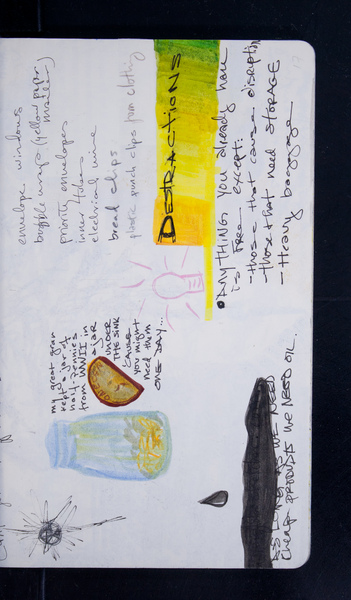 envelope windows
bubble wrap (yellow paper
priority envelopes
inner tubes
electrical wire
bread clips
plastic punch clips from clothing
DISTRACTIONS
• ANYTHING you already have
is FREE except:
- those that cause disruption
- those that need STORAGE
- Heavy baggage
my great gran
kept a jar of
half-pennies
from WWII in
a jar
UNDER
THE SINK
'CAUSE
you might
need them
ONE DAY...
AS LONG AS WE NEED
cheap PRODUCTS WE NEED OIL.